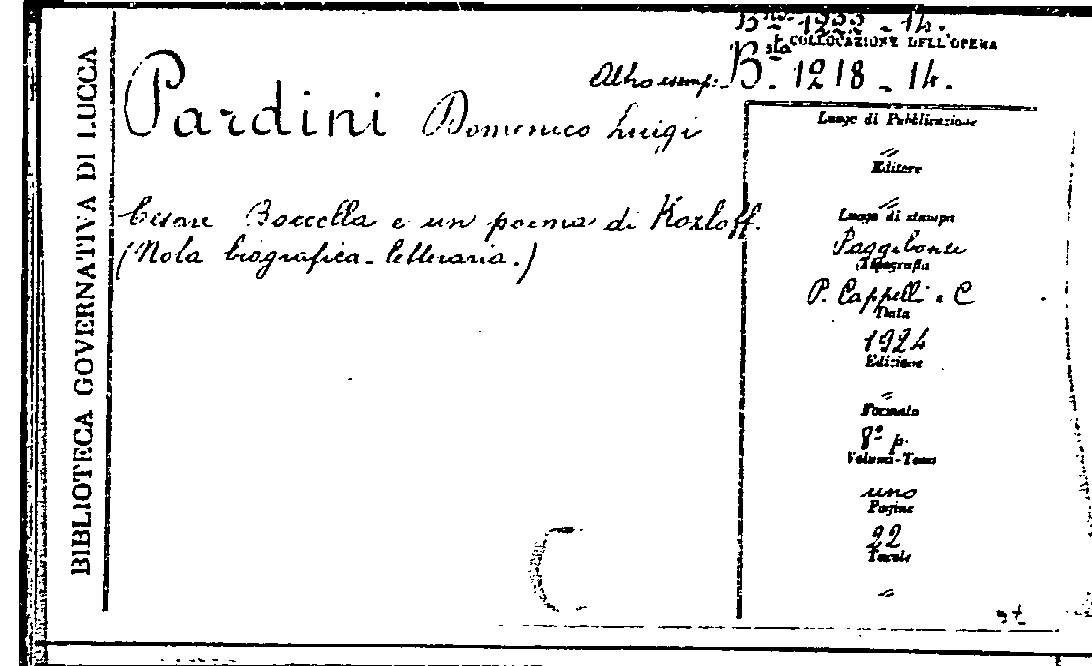 BIBLIOTECA GOVERNATIVA DI LUCCA
COLLOCAZIONE DELL'OPERA
Altro esemp: Bsta. 1218 - 14.
Pardini Domenico Luigi
Cesare Boccella e un poema di Kozloff.
(Nota biografica-letteraria.)
Luogo di Pubblicazione
"
Editore
"
Luogo di stampa
Poggibonsi
Tipografia
P. Cappelli e C
Data
1924
Edizione
"
Formato
8º p.
Volumi-Tomi
uno
Pagine
22
Tavole
"